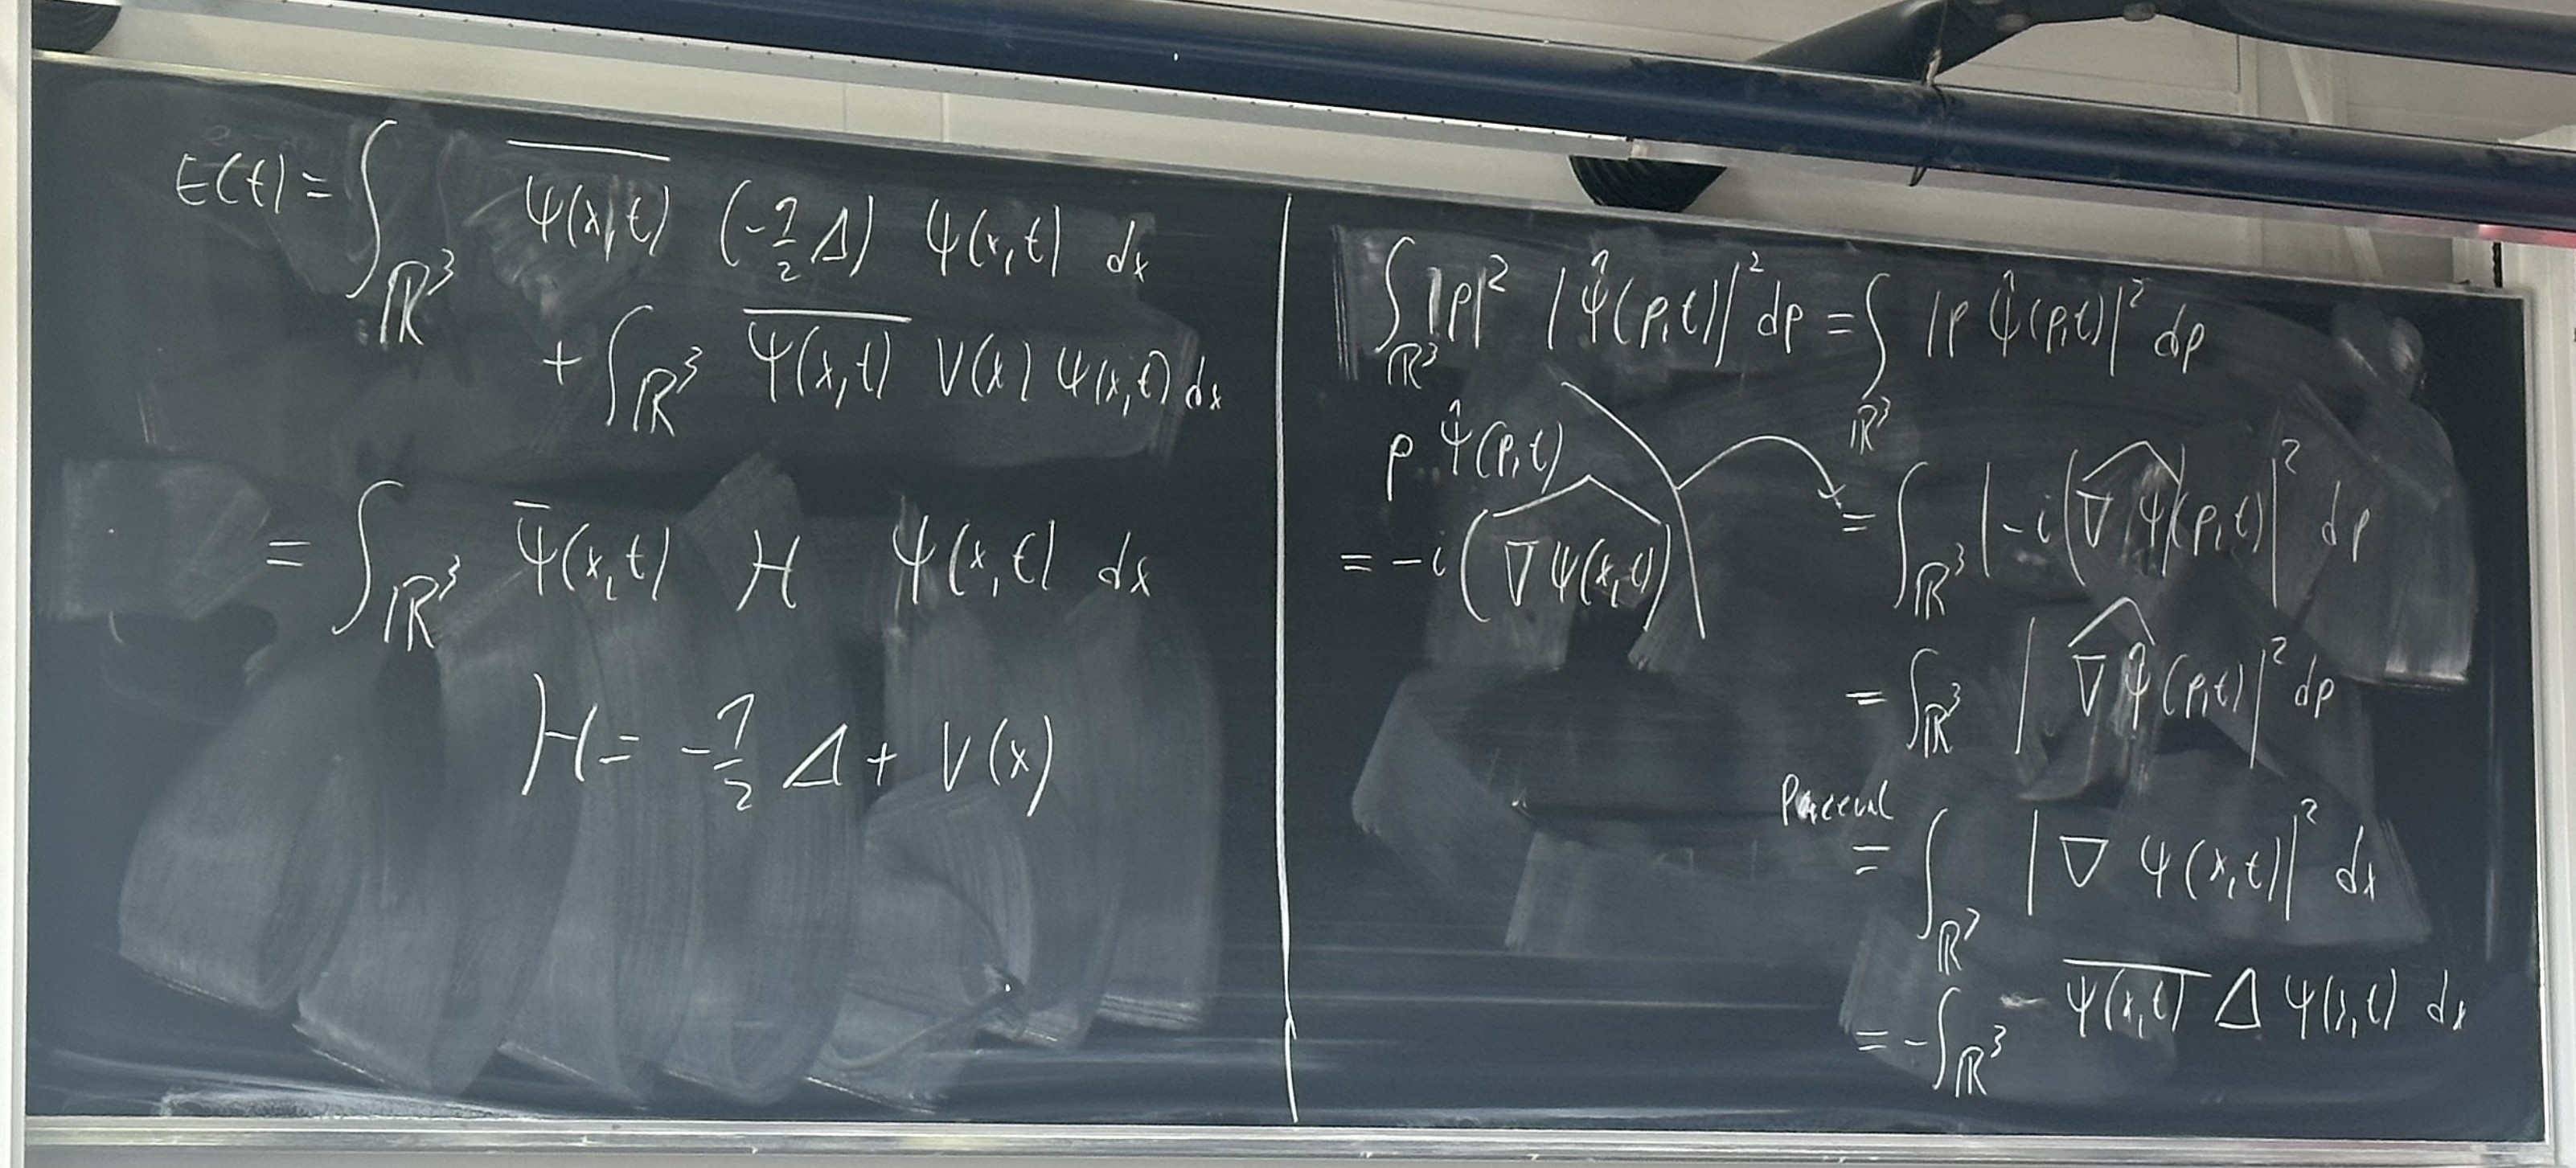 E(t) = ∫_{ℝ³} \overline{ψ(x,t)} (-½Δ) ψ(x,t) dx
+ ∫_{ℝ³} \overline{ψ(x,t)} V(x) ψ(x,t) dx
= ∫_{ℝ³} \overline{ψ}(x,t) H ψ(x,t) dx
H = -½ Δ + V(x)
∫_{ℝ³} |p|² |\hat{ψ}(p,t)|² dp = ∫_{ℝ³} |p \hat{ψ}(p,t)|² dp
p \hat{ψ}(p,t)
= -i (\widehat{∇ψ(x,t)})
= ∫_{ℝ³} |-i(\widehat{∇ψ})(p,t)|² dp
= ∫_{ℝ³} |\widehat{∇\hat{ψ}}(p,t)|² dp
Parceval
= ∫_{ℝ³} |∇ψ(x,t)|² dx
= -∫_{ℝ³} \overline{ψ(x,t)} Δ ψ(x,t) dx